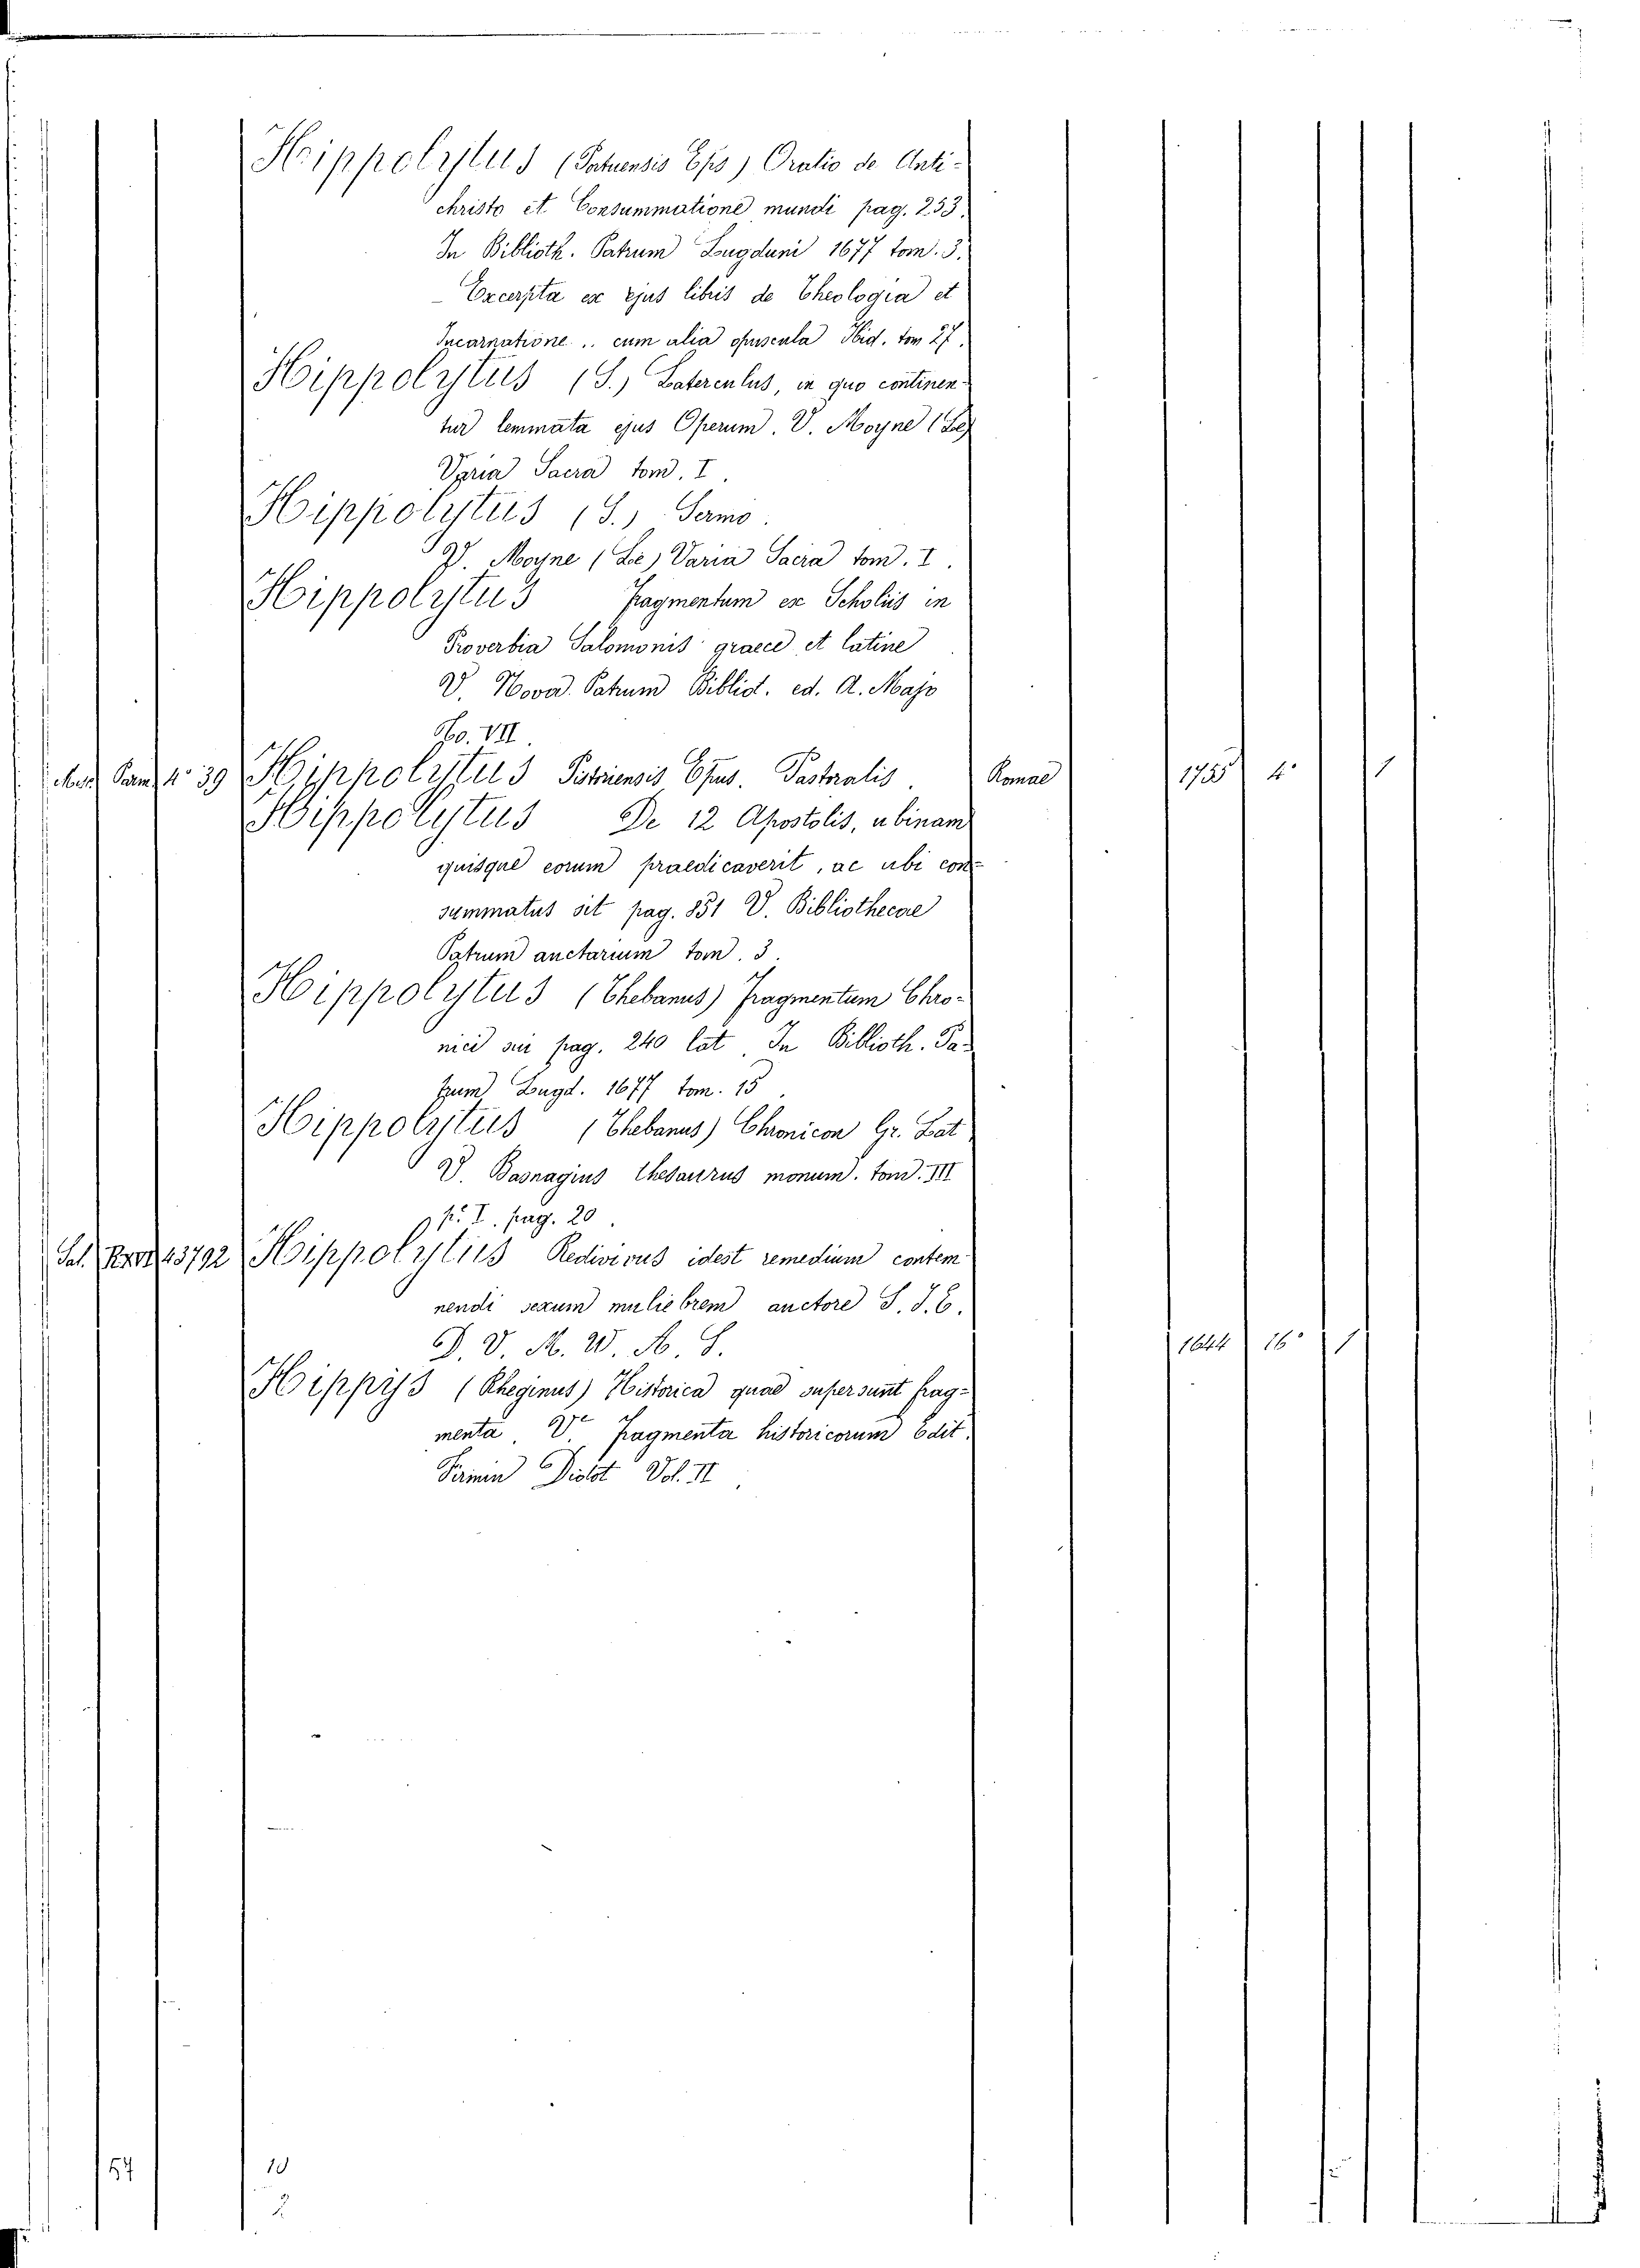 Hippolytus (Potuensis Eps) Oratio de Anti-
christo et Consummatione mundi pag. 253.
In Biblioth. Patrum Lugduni 1677 tom. 3.
- Excerpta ex ejus libris de Theologia et
Incarnatione .. cum alia opuscula Ibid. tom 27.
Hippolytus (S.) Laterculus, in quo continen-
tur lemmata ejus Operum. V. Moyne (Le)
Varia Sacra tom. I.
Hippolytus (S.) Sermo.
V. Moyne (Le) Varia Sacra tom. I.
Hippolytus Fragmentum ex Scholiis in
Proverbia Salomonis graece et latine
V. Nova Patrum Bibliot. ed. A. Majo
To. VII.
Pam. 4° 39 Hippolytus Epus. Pastoralis. Romae 1755 4° 1
Hippolytus De 12 Apostolis, ubinam
quisque eorum praedicaverit, ac ubi con-
summatus sit pag. 851 V. Bibliothecae
Patrum auctarium tom. 3.
Hippolytus (Thebanus) Fragmentum Chro-
nici sui pag. 240 lat. In Biblioth. Pa-
trum Lugd. 1677 tom. 15.
Hippolytus (Thebanus) Chronicon Gr. Lat.
V. Basnagius Thesaurus monum. tom. III
p. I. pag. 20.
Pal. 43792 Hippolytus Redivivus idest remedium contem-
nendi sexum muliebrem auctore S. I. E.
D. V. M. W. A. S. 1644 16° 1
Hippys (Rheginus) Historica quae supersunt frag-
menta. V. Fragmenta historicorum Edit.
Firmin Didot Vol. II.
57 10
2